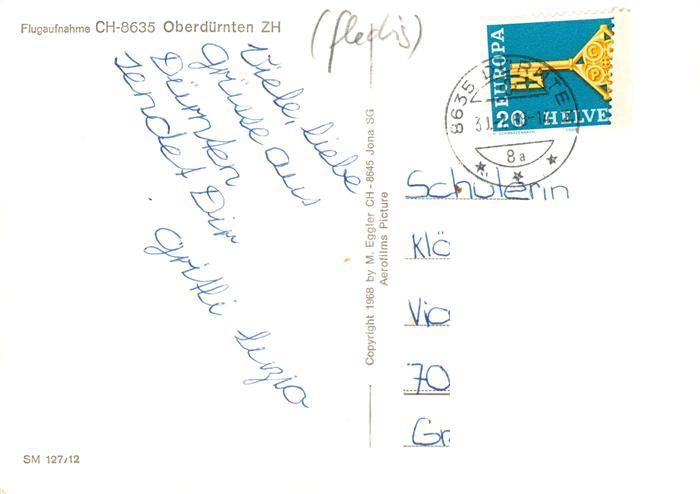 Flugaufnahme CH-8635 Oberdürnten ZH
(fledis)
Viele, liebe
Grüsse aus
Dürnten
sendet Dir
Gritli
Copyright 1968 by M. Eggler CH-8645 Jona SG
Aerofilms Picture
EUROPA
20 HELVE
8635
8a
Schülerin
Klö
Vio
70
Gr
SM 127/12